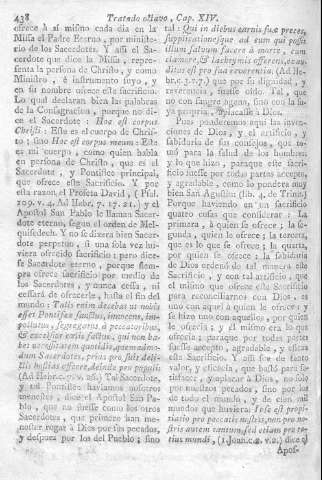 438 Tratado octavo, Cap. XIV.
ofrece à sí mismo cada dia en la
Missa el Padre Eterno, por ministe-
rio de los Sacerdotes. Y assi el Sa-
cerdote que dice la Missa, repre-
senta la persona de Christo, y como
Ministro, è instrumento suyo, y
en su nombre ofrece este sacrificio.
Lo qual declaran bien las palabras
de la Consagracion, porque no di-
ce el Sacerdote: Hoc est corpus
Christi: Este es el cuerpo de Chris-
to; sino Hoc est corpus meum: Este
es mi cuerpo, como quien habla
en persona de Christo, que es el
Sacerdote, y Pontifice principal,
que ofrece este Sacrificio. Y por
esta razon el Profeta David, (Psal.
109. v. 4. Ad Hebr. 7. 17. 21.) y el
Apostol San Pablo le llaman Sacer-
dote eterno, segun el orden de Mel-
quisedech. Y no se dixera bien Sacer-
dote perpetuo, si una sola vez hu-
viera ofrecido sacrificio: pero dice-
se Sacerdote eterno, porque siem-
pre ofrece sacrificio por medio de
los Sacerdotes, y nunca cessa, ni
cessará de ofrecerle, hasta el fin del
mundo: Talis enim decebat ut nobis
esset Pontifex sanctus, innocens, im-
pollutus, segregatus à peccatoribus,
& excelsior cœlis factus: qui non ha-
bet necessitatem quotidie, quemadmo-
dum Sacerdotes, prius pro suis delic-
tis hostias offerre, deinde pro populi:
(Ad Hebr. c. 7. v. 26.) Tal Sacerdote,
y tal Pontifice haviamos nosotros
menester, dice el Apostol San Pa-
blo, que no fuesse como los otros
Sacerdotes, que primero han me-
nester rogar à Dios por sus pecados,
y despues por los del Pueblo; sino
tal: Qui in diebus carnis suæ preces,
supplicationesque ad eum qui possit
illum salvum facere à morte, cum
clamore, & lachrymis offerens, exau-
ditus est pro sua reverentia. (Ad He-
br. c. 5. v. 7.) que por su dignidad, y
reverencia, fuesse oído. Tal, que
no con sangre agena, sino con la su-
ya propria, aplacasse à Dios.
Pues ponderemos aqui las inven-
ciones de Dios, y el artificio, y
sabiduría de sus consejos, que to-
mó para la salud de los hombres,
y lo que hizo, paraque este sacri-
ficio fuesse por todas partes accepto,
y agradable, como lo pondera muy
bien San Agustin (lib. 4. de Trinit.)
Porque haviendo en un sacrificio
quatro cosas que considerar: La
primera, à quien se ofrece; la se-
gunda, quien lo ofrece; la tercera,
que es lo que se ofrece; la quarta,
por quien se ofrece: la sabiduría
de Dios ordenó de tal manera este
Sacrificio, y con tal artificio, que
el mismo que ofrece este Sacrificio
para reconciliarnos con Dios, es
uno con aquel à quien le ofrece: y
se hizo uno con aquellos, por quien
le ofrecia; y el mismo era lo que
ofrecia; paraque por todas partes
fuesse accepto, agradable, y eficaz
este Sacrificio. Y assi fue de tanto
valor, y eficacia, que bastó para sa-
tisfacer, y aplacar à Dios, no solo
por nuestros pecados, sino por los
de todo el mundo, y de cien mil
mundos que huviera: Ipse est propi-
tiatio pro peccatis nostris, non pro no-
stris autem tantum, sed etiam pro to-
tius mundi, (1 Joan. c. 2. v. 2.) dice el
Apos-